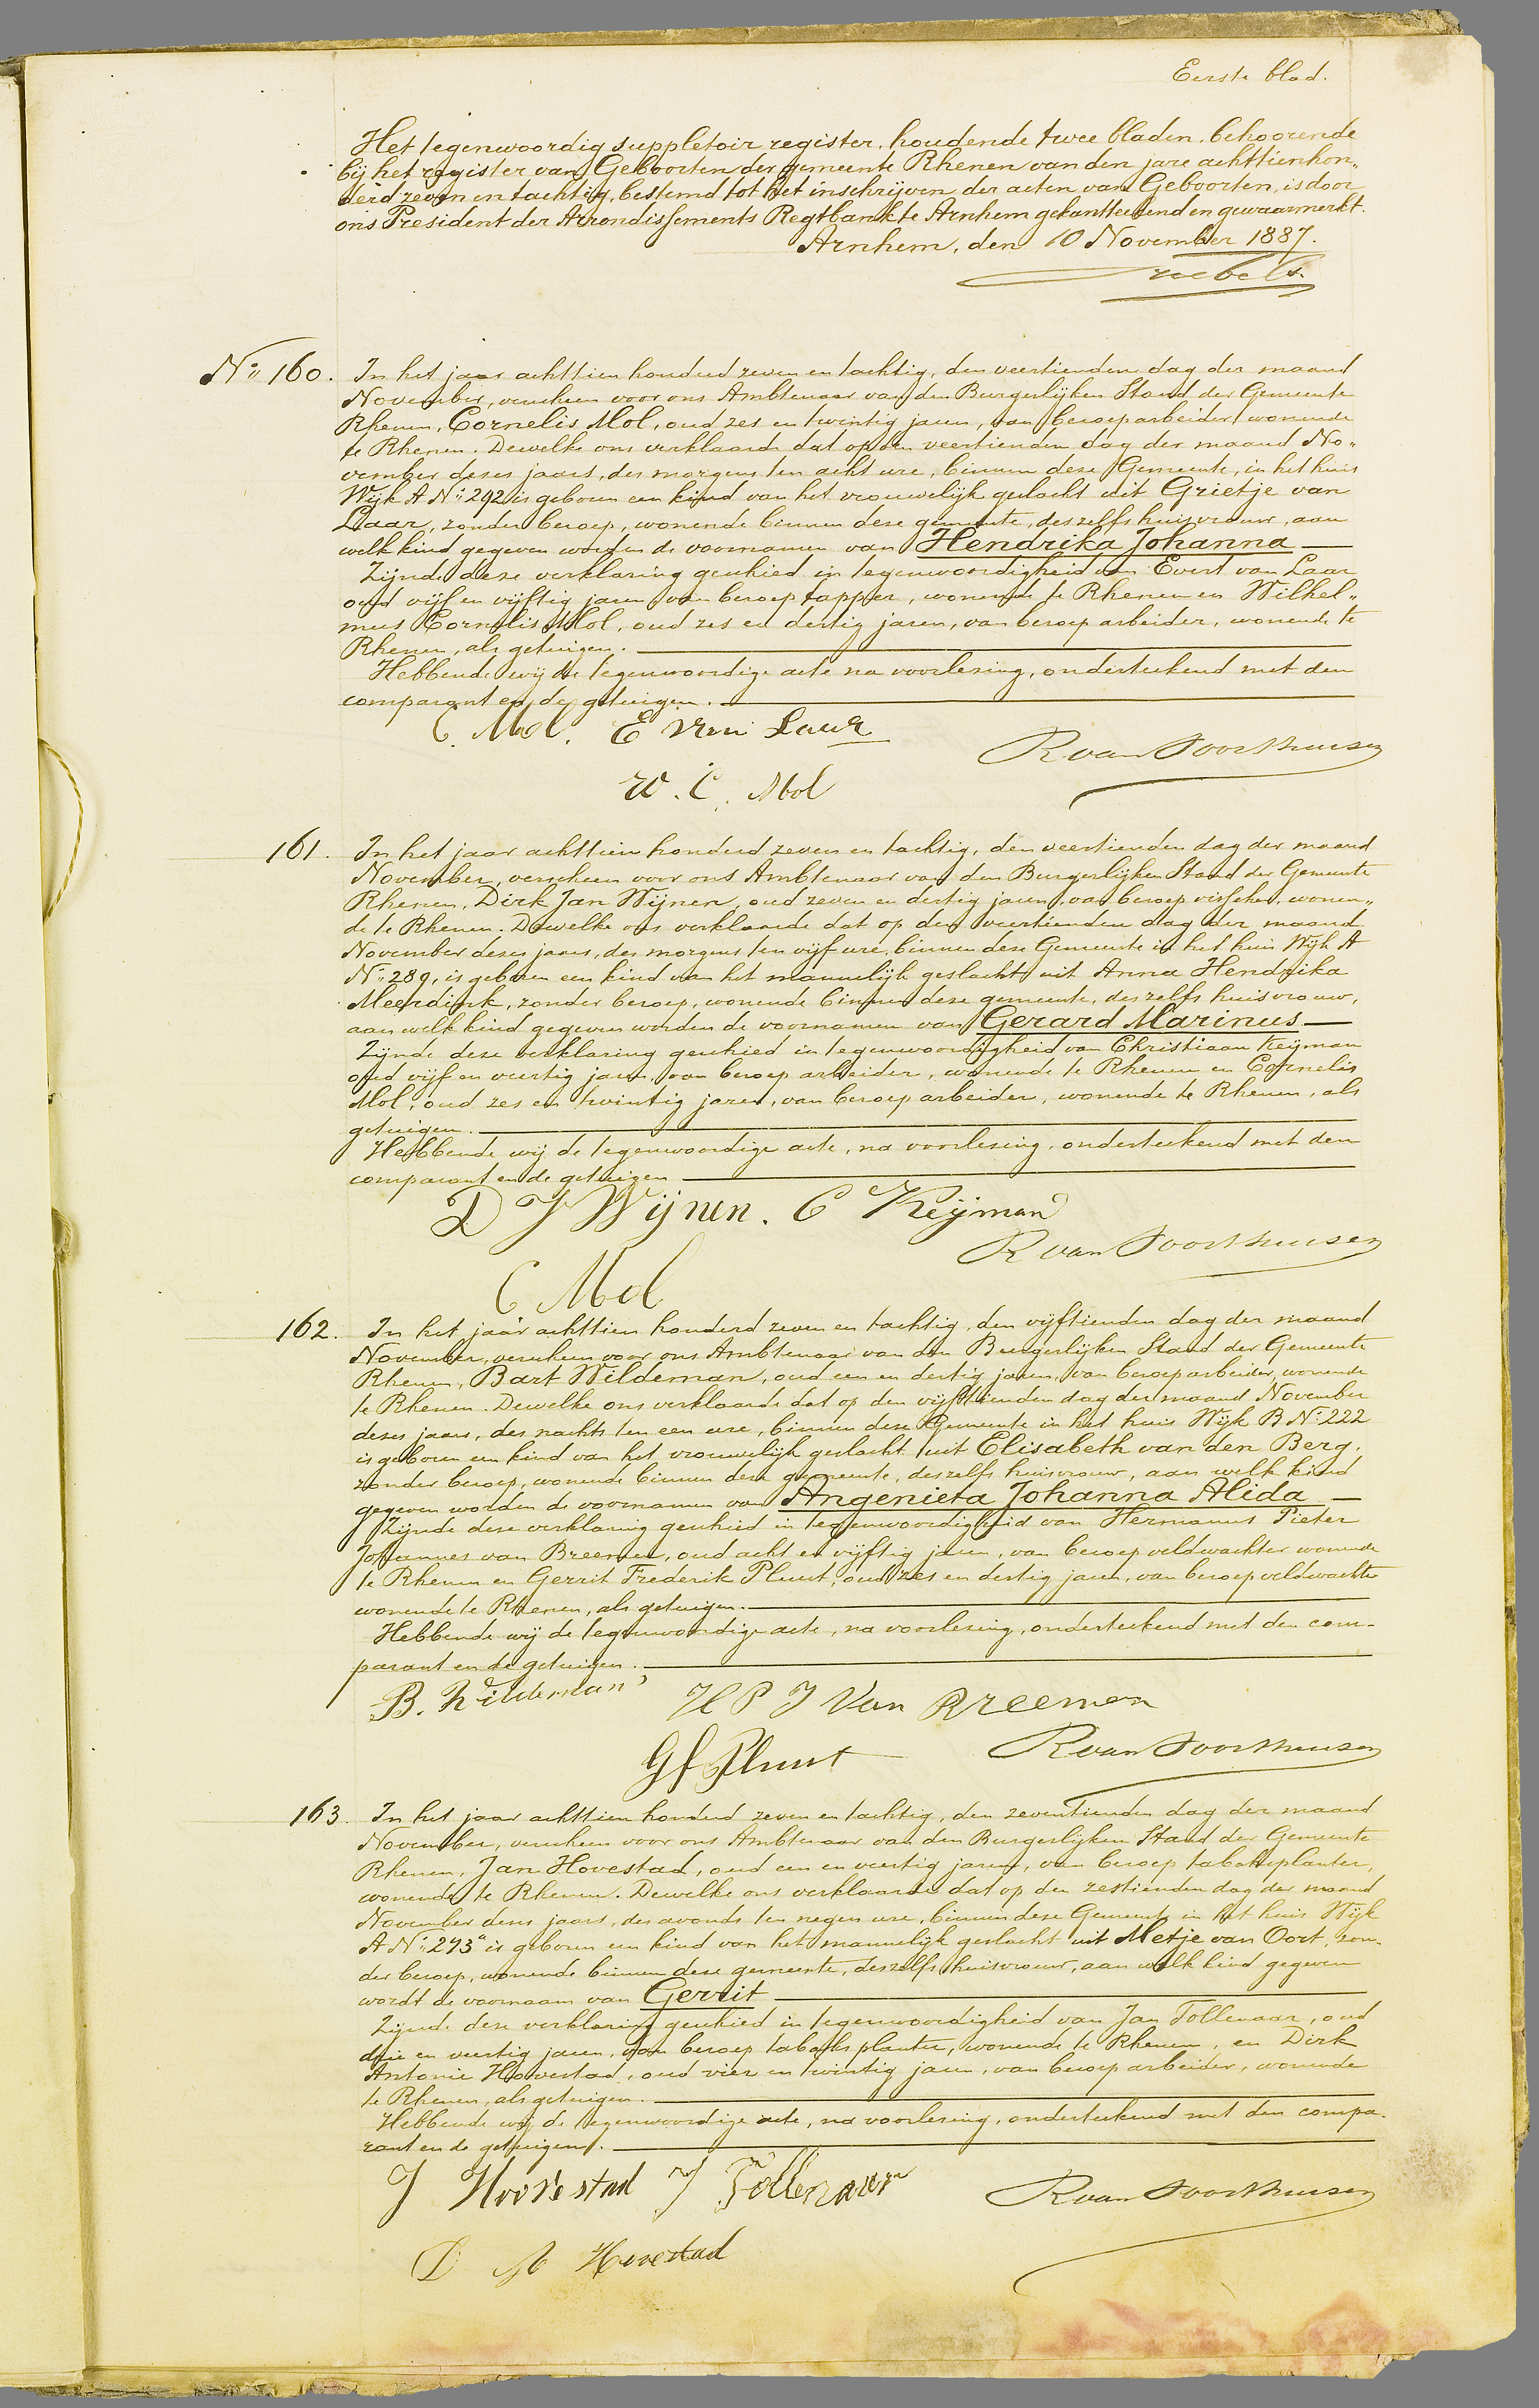 Eerste blad.
Het tegenwoordig suppletoir register, houdende twee bladen, behoorende
bij het register van Geboorten der gemeente Rhenen van den jare achttienhon„
derd zeven en tachtig, bestemd tot het inschrijven der acten van Geboorten, is door
ons President der Arrondissements Regtbank te Arnhem gekantteekend en gewaarmerkt.
Arnhem, den 10 November 1887.
No 160. In het jaar achttien honderd zeven en tachtig, den veertienden dag der maand
November, verscheen voor ons Ambtenaar van den Burgerlijken Stand der Gemeente
Rhenen, Cornelis Mol, oud zes en twintig jaren, van beroep arbeider, wonende
te Rhenen. Dewelke ons verklaarde dat op den veertienden dag der maand No„
vember dezes jaars, des morgens ten acht ure, binnen deze Gemeente, in het huis
Wijk A No 292 is geboren een kind van het vrouwelijk geslacht uit Grietje van
Laar, zonder beroep, wonende binnen deze gemeente, deszelfs huisvrouw, aan
welk kind gegeven worden de voornamen van Hendrika Johanna
Zijnde deze verklaring geschied in tegenwoordigheid van Evert van Laar
oud vijf en vijftig jaren, van beroep tapper, wonende te Rhenen en Wilhel„
mus Cornelis Mol, oud zes en dertig jaren, van beroep arbeider, wonende te
Rhenen, als getuigen.
Hebbende wij de tegenwoordige acte na voorlezing, onderteekend met den
comparant en de getuigen.
C. Mol. E van Laar
R van Soosthuisen
W. C. Mol
161. In het jaar achttien honderd zeven en tachtig, den veertienden dag der maand
November, verscheen voor ons Ambtenaar van den Burgerlijken Stand der Gemeente
Rhenen, Dirk Jan Wijnen, oud zeven en dertig jaren, van beroep visscher, wonen„
de te Rhenen. Dewelke ons verklaarde dat op den veertienden dag der maand
November dezes jaars, des morgens ten vijf ure, binnen deze Gemeente in het huis Wijk A
No 289, is geboren een kind van het mannelijk geslacht uit Anna Hendrika
Meerdink, zonder beroep, wonende binnen deze gemeente, deszelfs huisvrouw,
aan welk kind gegeven worden de voornamen van Gerard Marinus
Zijnde deze verklaring geschied in tegenwoordigheid van Christiaan Keijman
oud vijf en veertig jaren, van beroep arbeider, wonende te Rhenen en Cornelis
Mol, oud zes en twintig jaren, van beroep arbeider, wonende te Rhenen, als
getuigen.
Hebbende wij de tegenwoordige acte, na voorlezing, onderteekend met den
comparant en de getuigen
D J Wijnen. C Keijman
R van Soosthuisen
C Mol
162. In het jaar achttien honderd zeven en tachtig, den vijftienden dag der maand
November, verscheen voor ons Ambtenaar van den Burgerlijken Stand der Gemeente
Rhenen, Bart Wildeman, oud een en dertig jaren, van beroep arbeider, wonende
te Rhenen. Dewelke ons verklaarde dat op den vijftienden dag der maand November
dezes jaars, des nachts ten een ure, binnen deze Gemeente in het huis Wijk B No 222
is geboren een kind van het vrouwelijk geslacht uit Elisabeth van den Berg,
zonder beroep, wonende binnen deze gemeente, deszelfs huisvrouw, aan welk kind
gegeven worden de voornamen van Angenieta Johanna Alida
Zijnde deze verklaring geschied in tegenwoordigheid van Hermanus Pieter
Johannes van Breemen, oud acht en vijftig jaren, van beroep veldwachter wonende
te Rhenen en Gerrit Frederik Pluut, oud zes en dertig jaren, van beroep veldwachter
wonende te Rhenen, als getuigen.
Hebbende wij de tegenwoordige acte, na voorlezing, onderteekend met den com-
parant en de getuigen.
B. Wildeman H P J van Breemen
Gf Pluut R van Soosthuisen
163. In het jaar achttien honderd zeven en tachtig, den zeventienden dag der maand
November, verscheen voor ons Ambtenaar van den Burgerlijken Stand der Gemeente
Rhenen, Jan Hovestad, oud een en veertig jaren, van beroep tabaksplanter,
wonende te Rhenen. Dewelke ons verklaarde dat op den zestienden dag der maand
November dezes jaars, des avonds ten negen ure, binnen deze Gemeente in het huis Wijk
A No 293a is geboren een kind van het mannelijk geslacht uit Metje van Oort, zon„
der beroep, wonende binnen deze gemeente, deszelfs huisvrouw, aan welk kind gegeven
wordt de voornaam van Gerrit
Zijnde deze verklaring geschied in tegenwoordigheid van Jan Tollenaar, oud
drie en veertig jaren, van beroep tabaksplanter, wonende te Rhenen, en Dirk
Antonie Hovestad, oud vier en twintig jaren, van beroep arbeider, wonende
te Rhenen, als getuigen.
Hebbende wij de tegenwoordige acte, na voorlezing, onderteekend met den compa„
rant en de getuigen.
J Hovestad J Tollenaar R van Soosthuisen
D A Hovestad